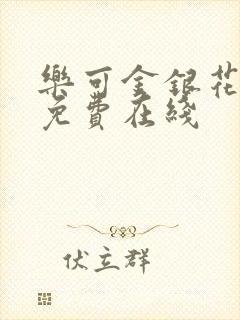 樂可金銀花
免費在綫
伏立群